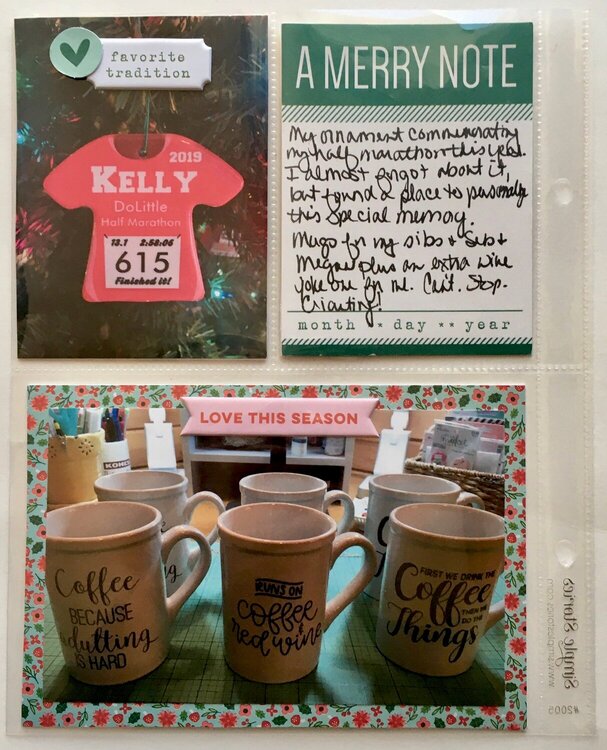 favorite
tradition
2019
KELLY
DoLittle
Half Marathon
13.1 2:58:06
615
Finished it!
A MERRY NOTE
My ornament commemorating
my half marathon this year.
I almost forgot about it,
but found a place to personalize
this special memory.
Mugs for my sibs &
Megned plus an extra wine
joke one for me. Can't. Stop.
Creating!
month ** day ** year
LOVE THIS SEASON
KOHL'S
Coffee
BECAUSE
adulting
IS HARD
RUNS ON
coffee &
red wine
FIRST WE DRINK THE
Coffee
THEN WE
DO THE
Things
Simple Stories
www.simplestories.com